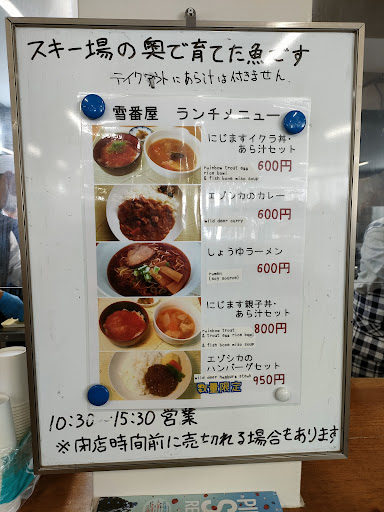 スキー場の奥で育てた魚です
テイクアウトにあら汁は付きません
雪番屋 ランチメニュー
にじますイクラ丼・
あら汁セット
rainbow trout egg
rice bowl
& fish bone miso soup
600円
エゾシカのカレー
wild deer curry
600円
しょうゆラーメン
ramen
(soy source)
600円
にじます親子丼・
あら汁セット
rainbow trout
& trout egg rice bowl
& fish bone miso soup
800円
エゾシカの
ハンバーグセット
950円
数量限定
10:30-15:30営業
※閉店時間前に売切れる場合もあります